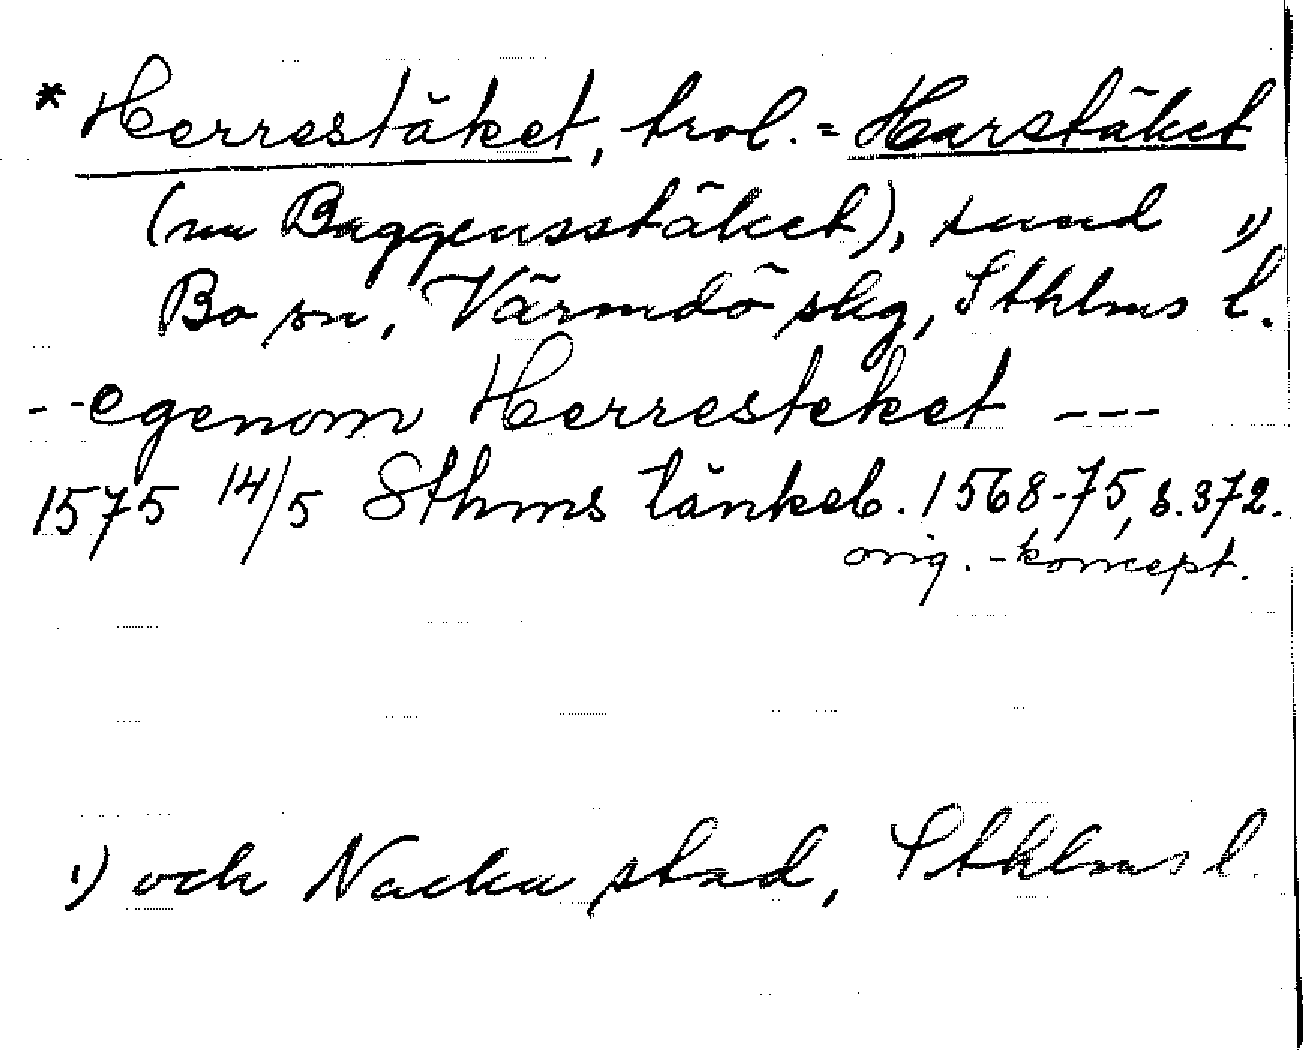 * Herrestäket, trol. = Harstäket
(nu Baggensstäket), sund 1)
Bo sn, Värmdö slg, Sthlms l.
- - egenom Herresteket ---
1575 14/5 Sthms tänkeb. 1568-75, s. 372.
orig. - koncept.
1) och Nacka stad, Sthlms l.